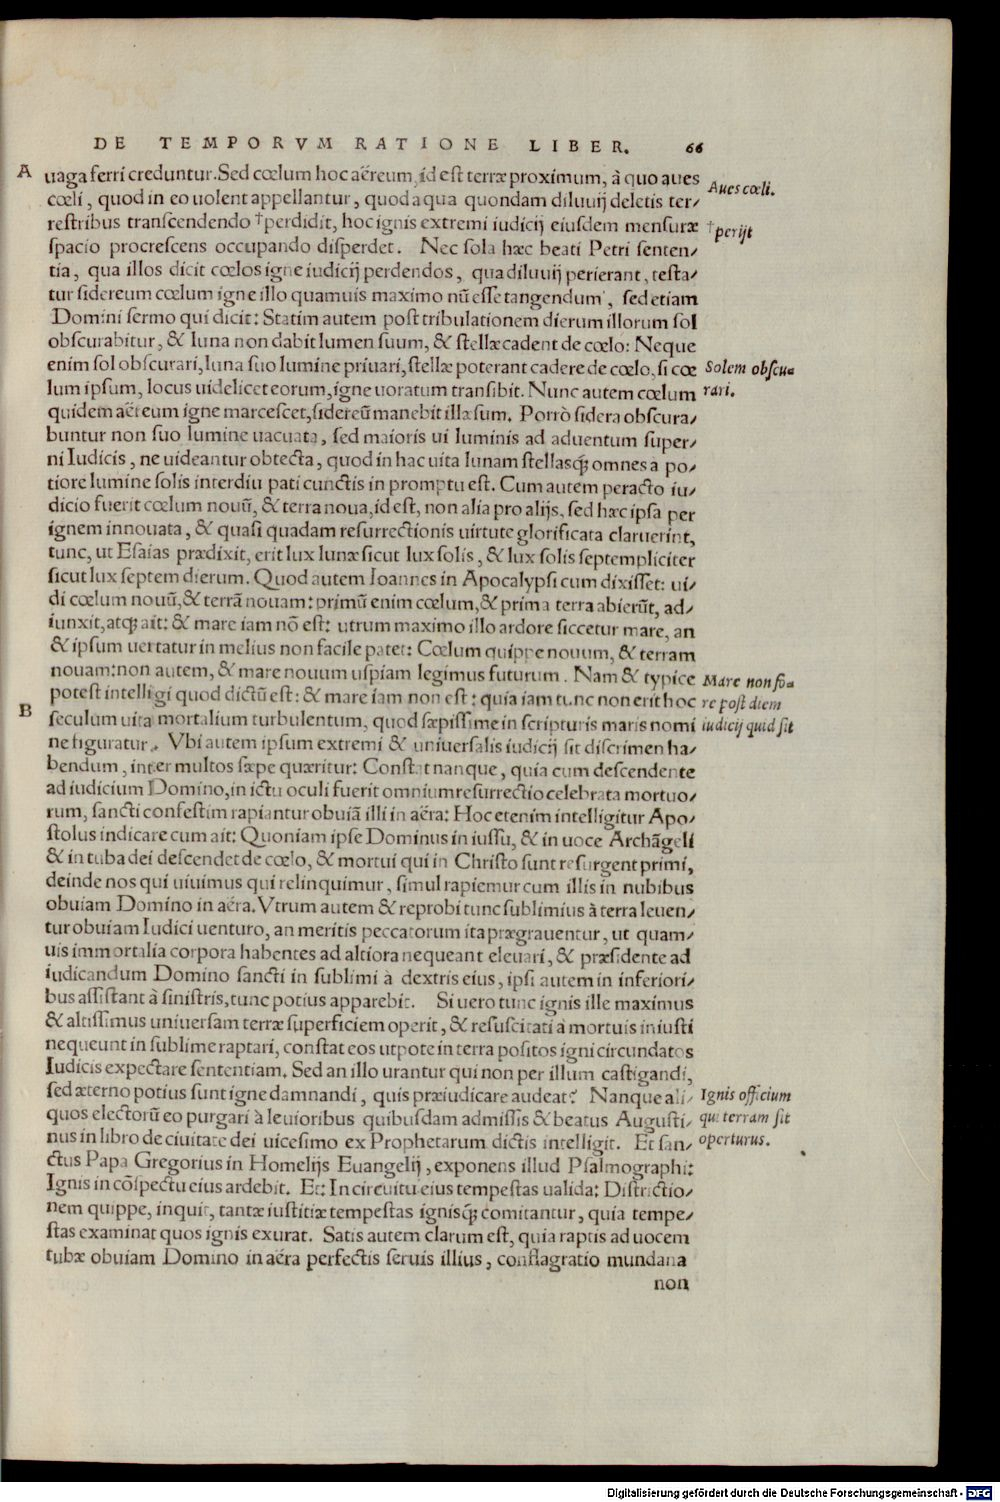 DE TEMPORVM RATIONE LIBER. 66
A uaga ferri creduntur. Sed cœlum hoc aëreum, id est terræ proximum, à quo aues
Aues cœli.
cœli, quod in eo uolent appellantur, quod aqua quondam diluuij deletis ter/
restribus transcendendo †perdidit, hoc ignis extremi iudicij eiusdem mensuræ
†perijt
spacio procrescens occupando disperdet. Nec sola hæc beati Petri senten/
tia, qua illos dicit cœlos igne iudicij perdendos, qua diluuij perierant, testa/
tur sidereum cœlum igne illo quamuis maximo nũ esse tangendum, sed etiam
Domini sermo qui dicit: Statim autem post tribulationem dierum illorum sol
obscurabitur, & luna non dabit lumen suum, & stellæ cadent de cœlo: Neque
enim sol obscurari, luna suo lumine priuari, stellæ poterant cadere de cœlo, si cœ
Solem obscu=
lum ipsum, locus uidelicet eorum, igne uoratum transibit. Nunc autem cœlum
rari.
quidem aëreum igne marcescet, sidereũ manebit illæsum. Porrò sidera obscura/
buntur non suo lumine uacuata, sed maioris ui luminis ad aduentum super/
ni Iudicis, ne uideantur obtecta, quod in hac uita lunam stellasq́; omnes à po/
tiore lumine solis interdiu pati cunctis in promptu est. Cum autem peracto iu/
dicio fuerit cœlum nouũ, & terra noua, id est, non alia pro alijs, sed hæc ipsa per
ignem innouata, & quasi quadam resurrectionis uirtute glorificata claruerint,
tunc, ut Esaias prædixit, erit lux lunæ sicut lux solis, & lux solis septempliciter
sicut lux septem dierum. Quod autem Ioannes in Apocalypsi cum dixisset: ui/
di cœlum nouũ, & terrã nouam: primũ enim cœlum, & prima terra abierũt, ad/
iunxit, atq́; ait: & mare iam nõ est: utrum maximo illo ardore siccetur mare, an
& ipsum uertatur in melius non facile patet: Cœlum quippe nouum, & terram
nouam: non autem, & mare nouum uspiam legimus futurum. Nam & typice
Mare non fo=
potest intelligi quod dictũ est: & mare iam non est: quia iam tunc non erit hoc
re post diem
B seculum uita mortalium turbulentum, quod sæpissime in scripturis maris nomi
iudicij quid sit
ne figuratur. Vbi autem ipsum extremi & uniuersalis iudicij sit discrimen ha/
bendum, inter multos sæpe quæritur: Constat nanque, quia cum descendente
ad iudicium Domino, in ictu oculi fuerit omnium resurrectio celebrata mortuo/
rum, sancti confestim rapiantur obuiã illi in aëra: Hoc etenim intelligitur Apo/
stolus indicare cum ait: Quoniam ipse Dominus in iussu, & in uoce Archãgeli
& in tuba dei descendet de cœlo, & mortui qui in Christo sunt resurgent primi,
deinde nos qui uiuimus qui relinquimur, simul rapiemur cum illis in nubibus
obuiam Domino in aëra. Vtrum autem & reprobi tunc sublimius à terra leuen/
tur obuiam Iudici uenturo, an meritis peccatorum ita prægrauentur, ut quam/
uis immortalia corpora habentes ad altiora nequeant eleuari, & præsidente ad
iudicandum Domino sancti in sublimi à dextris eius, ipsi autem in inferiori/
bus assistant à sinistris, tunc potius apparebit. Si uero tunc ignis ille maximus
& altissimus uniuersam terræ superficiem operit, & resuscitati à mortuis iniusti
nequeunt in sublime raptari, constat eos utpote in terra positos igni circundatos
Iudicis expectare sententiam. Sed an illo urantur qui non per illum castigandi,
sed æterno potius sunt igne damnandi, quis præiudicare audeat? Nanque ali/
Ignis officium
quos electorũ eo purgari à leuioribus quibusdam admissis & beatus Augusti/
qui terram sit
nus in libro de ciuitate dei uicesimo ex Prophetarum dictis intelligit. Et san/
operturus.
ctus Papa Gregorius in Homelijs Euangelij, exponens illud Psalmographi:
Ignis in cõspectu eius ardebit. Et: In circuitu eius tempestas ualida: Districtio/
nem quippe, inquit, tantæ iustitiæ tempestas ignisq́; comitantur, quia tempe/
stas examinat quos ignis exurat. Satis autem clarum est, quia raptis ad uocem
tubæ obuiam Domino in aëra perfectis seruis illius, conflagratio mundana
non
Digitalisierung gefördert durch die Deutsche Forschungsgemeinschaft - DFG